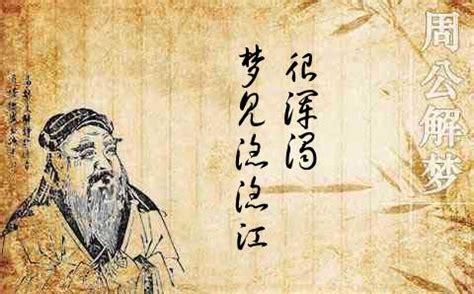 周公解梦
很浑浊
梦见滔滔江